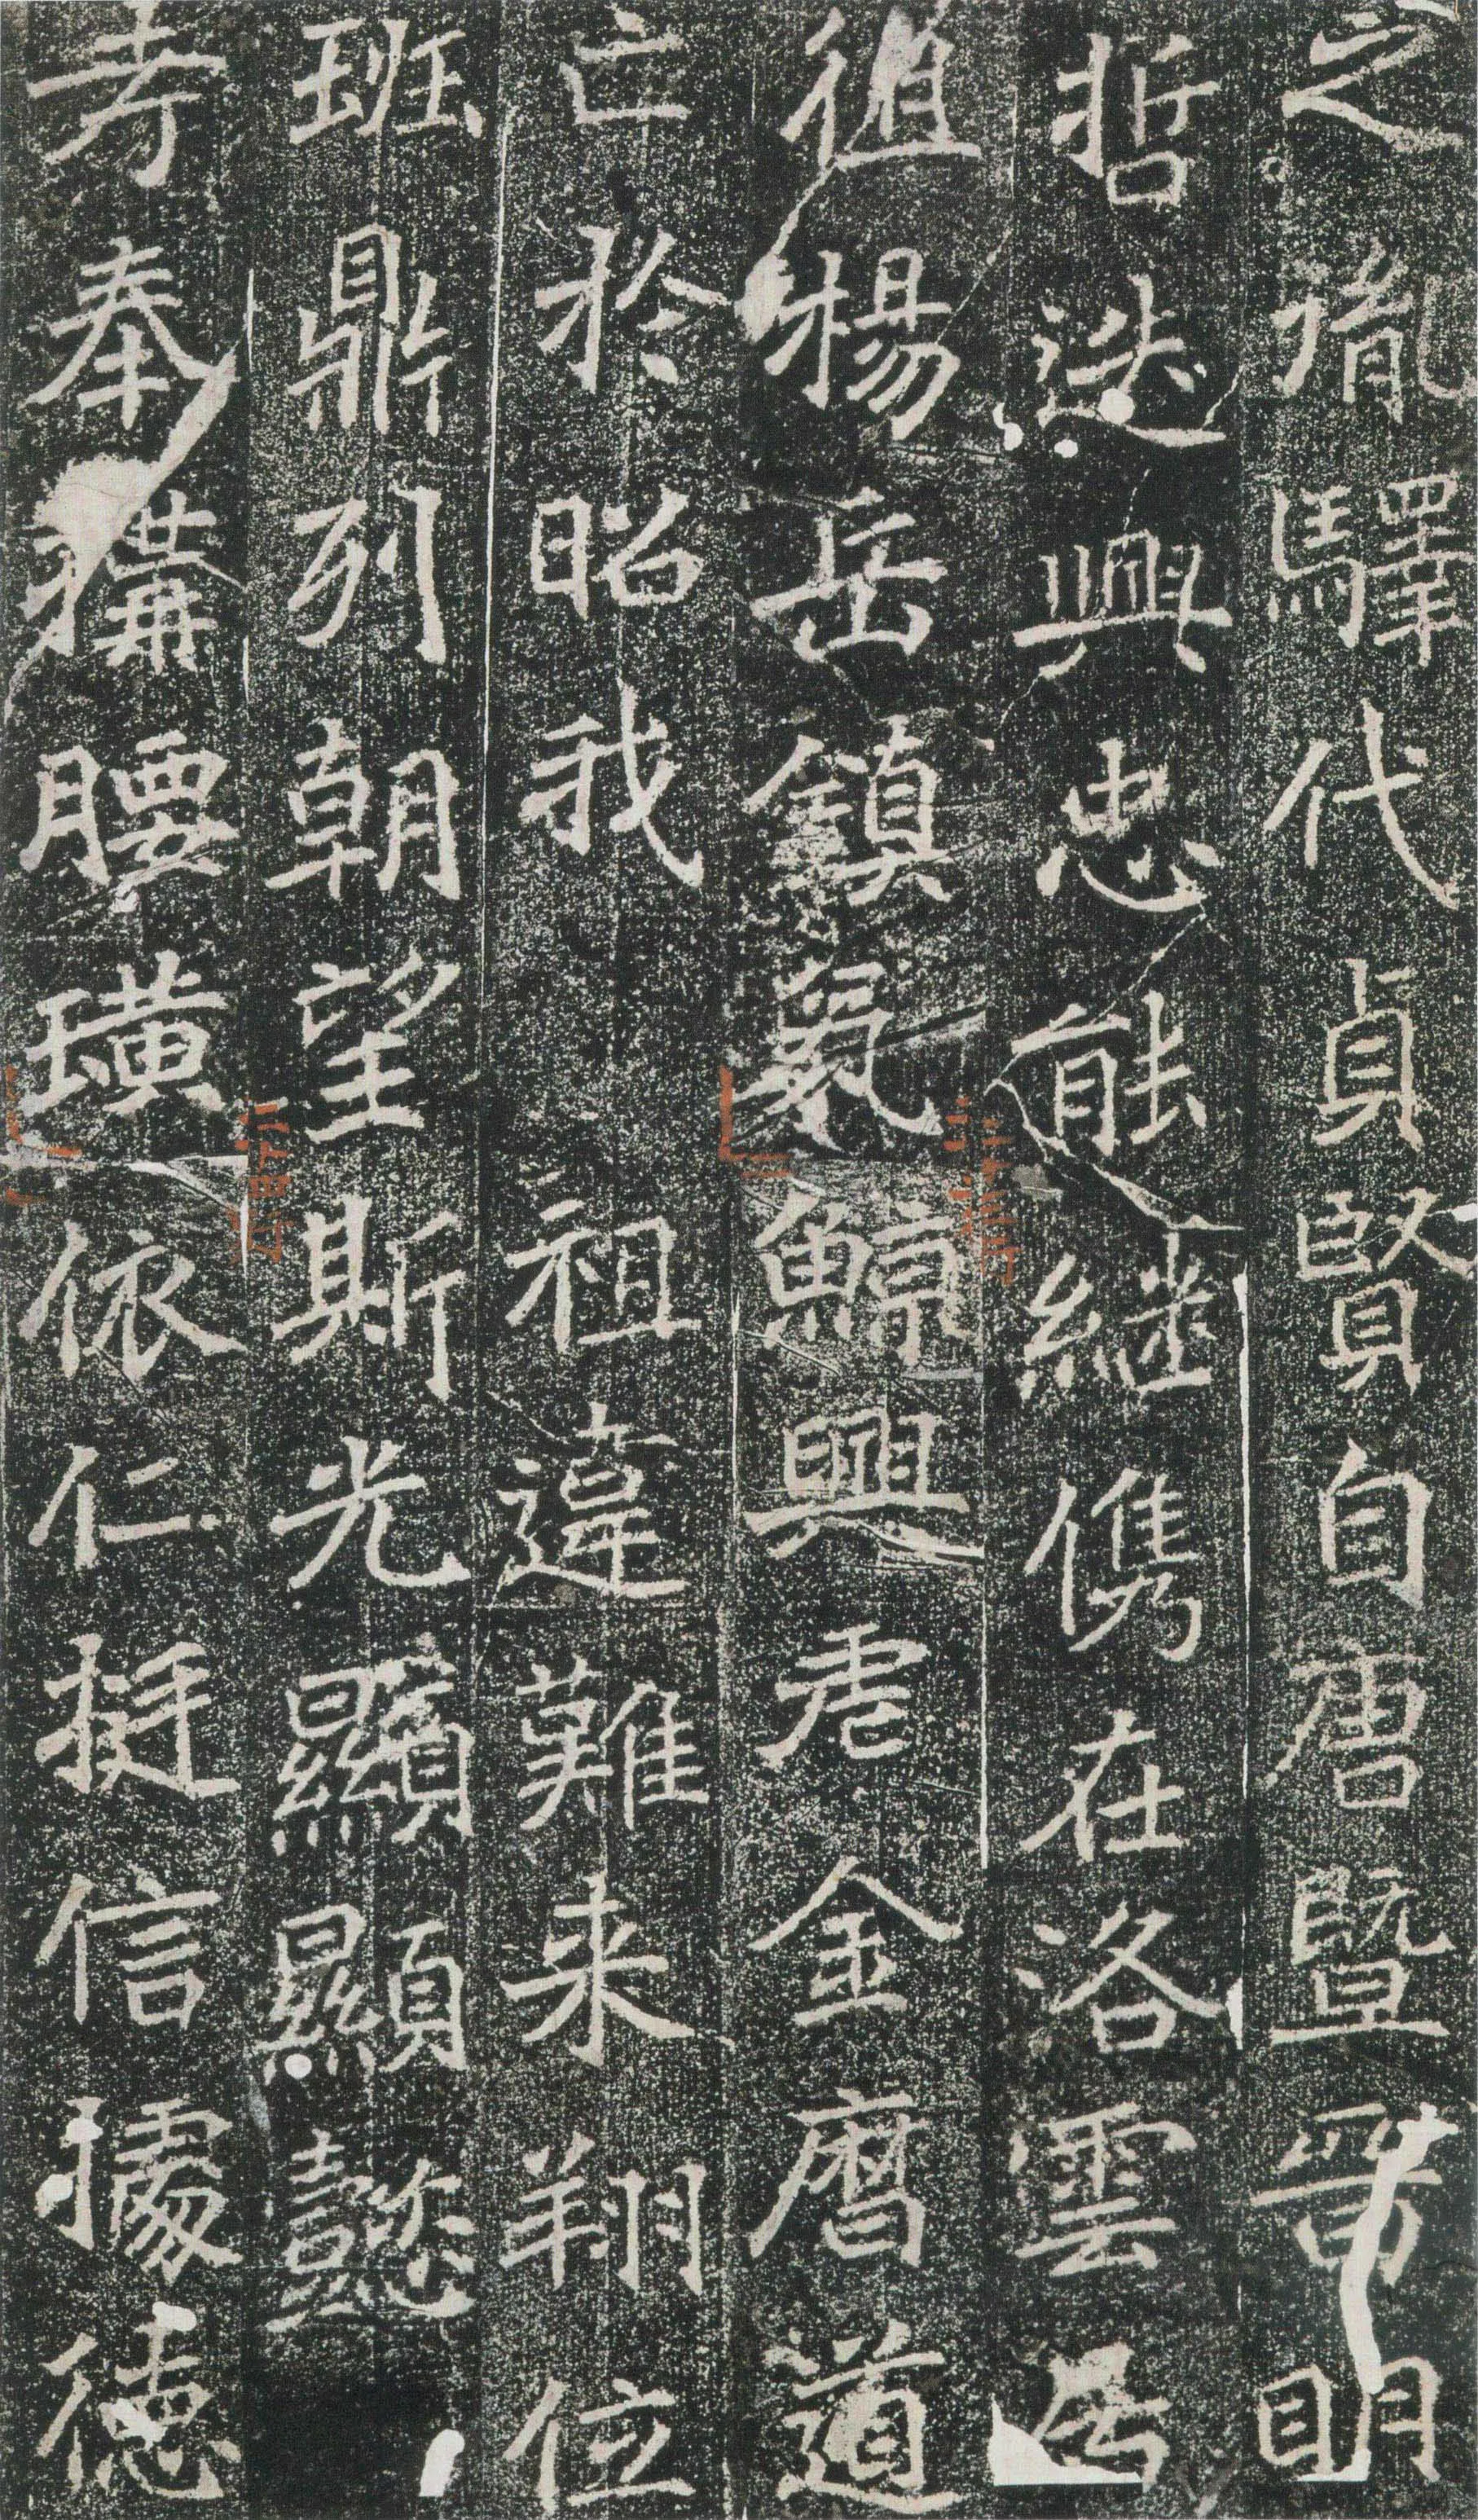 之胤驛代貞賢自唐暨晉明
哲迭興忠能継儁在洛雲
徂楊岳鎮鯨興虐金曆道
亡於昭我 祖違難来翔位
班鼎列朝望斯光顯顯懿
考奉搆腰璜依仁挺信據德